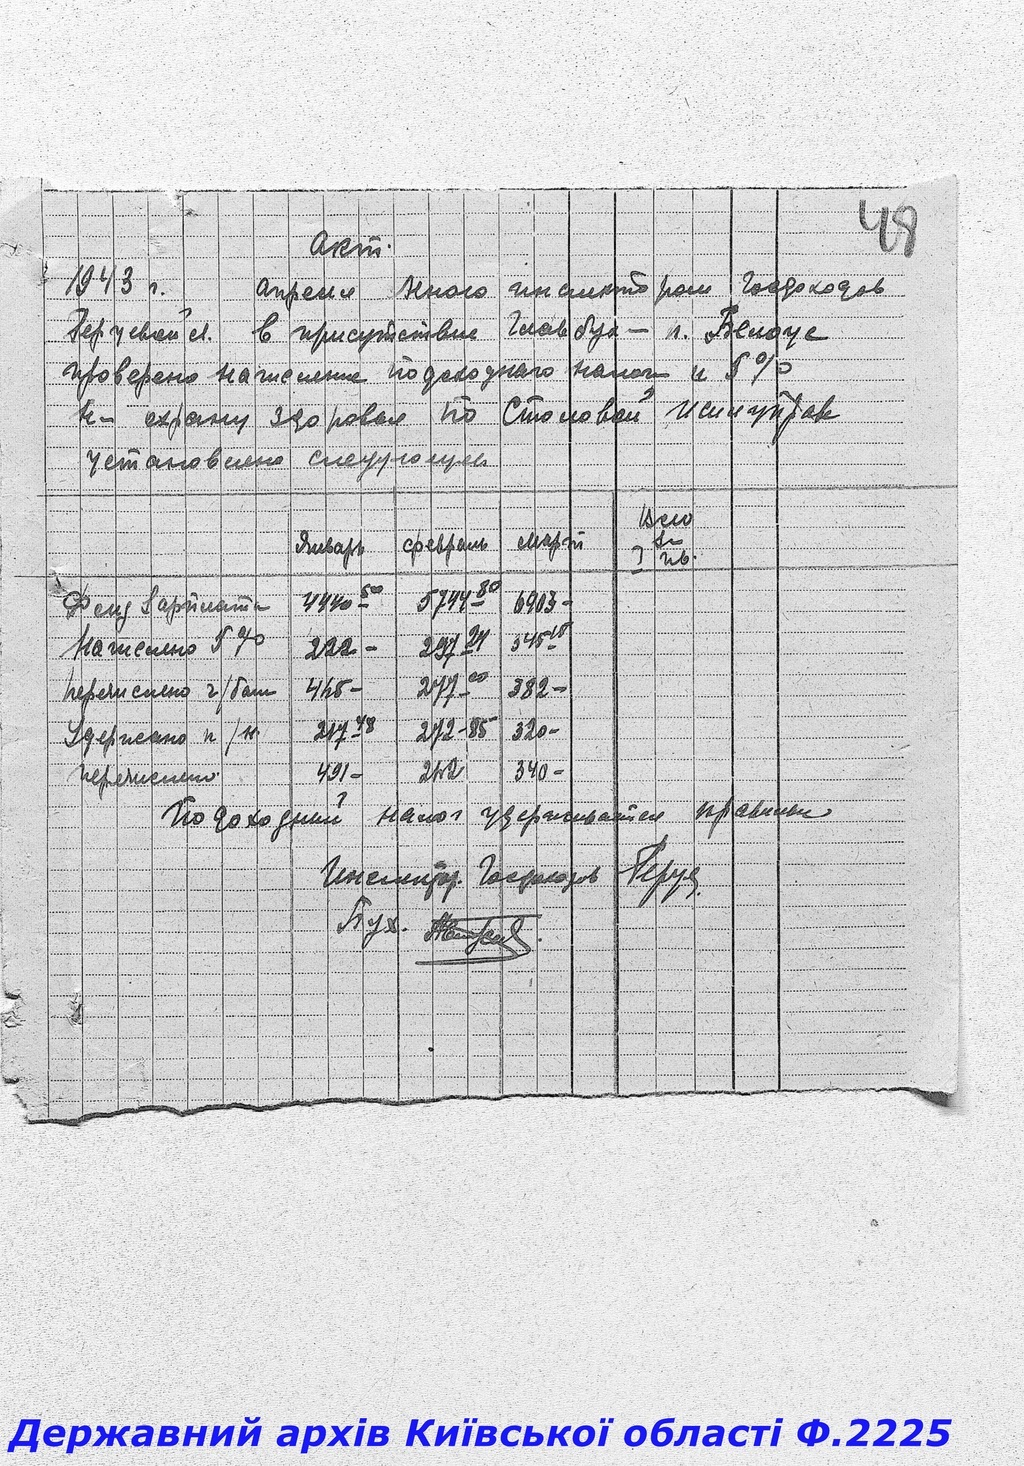 48
Акт.
1943 г. апреля мною инспектором Госдоходов
в присутствие Главбух п. Белоус
проверено начисление подоходнаго налога и 5%
на охрану здоровья по Столовай
установлено следующее
Январь февраль март Всего за I кв.
Фонд Зарплаты 4440-50 5744-80 6903-
Начислено 5% 222- 345-15
перечислено ч/банк 277-00 382-
Удержано п/н. 217-48 272-85 320-
перечислено. 491- 242 340-
Подоходний налог удерживается правильно
Инспектор Госдоходов
Бух.
Державний архів Київської області Ф.2225